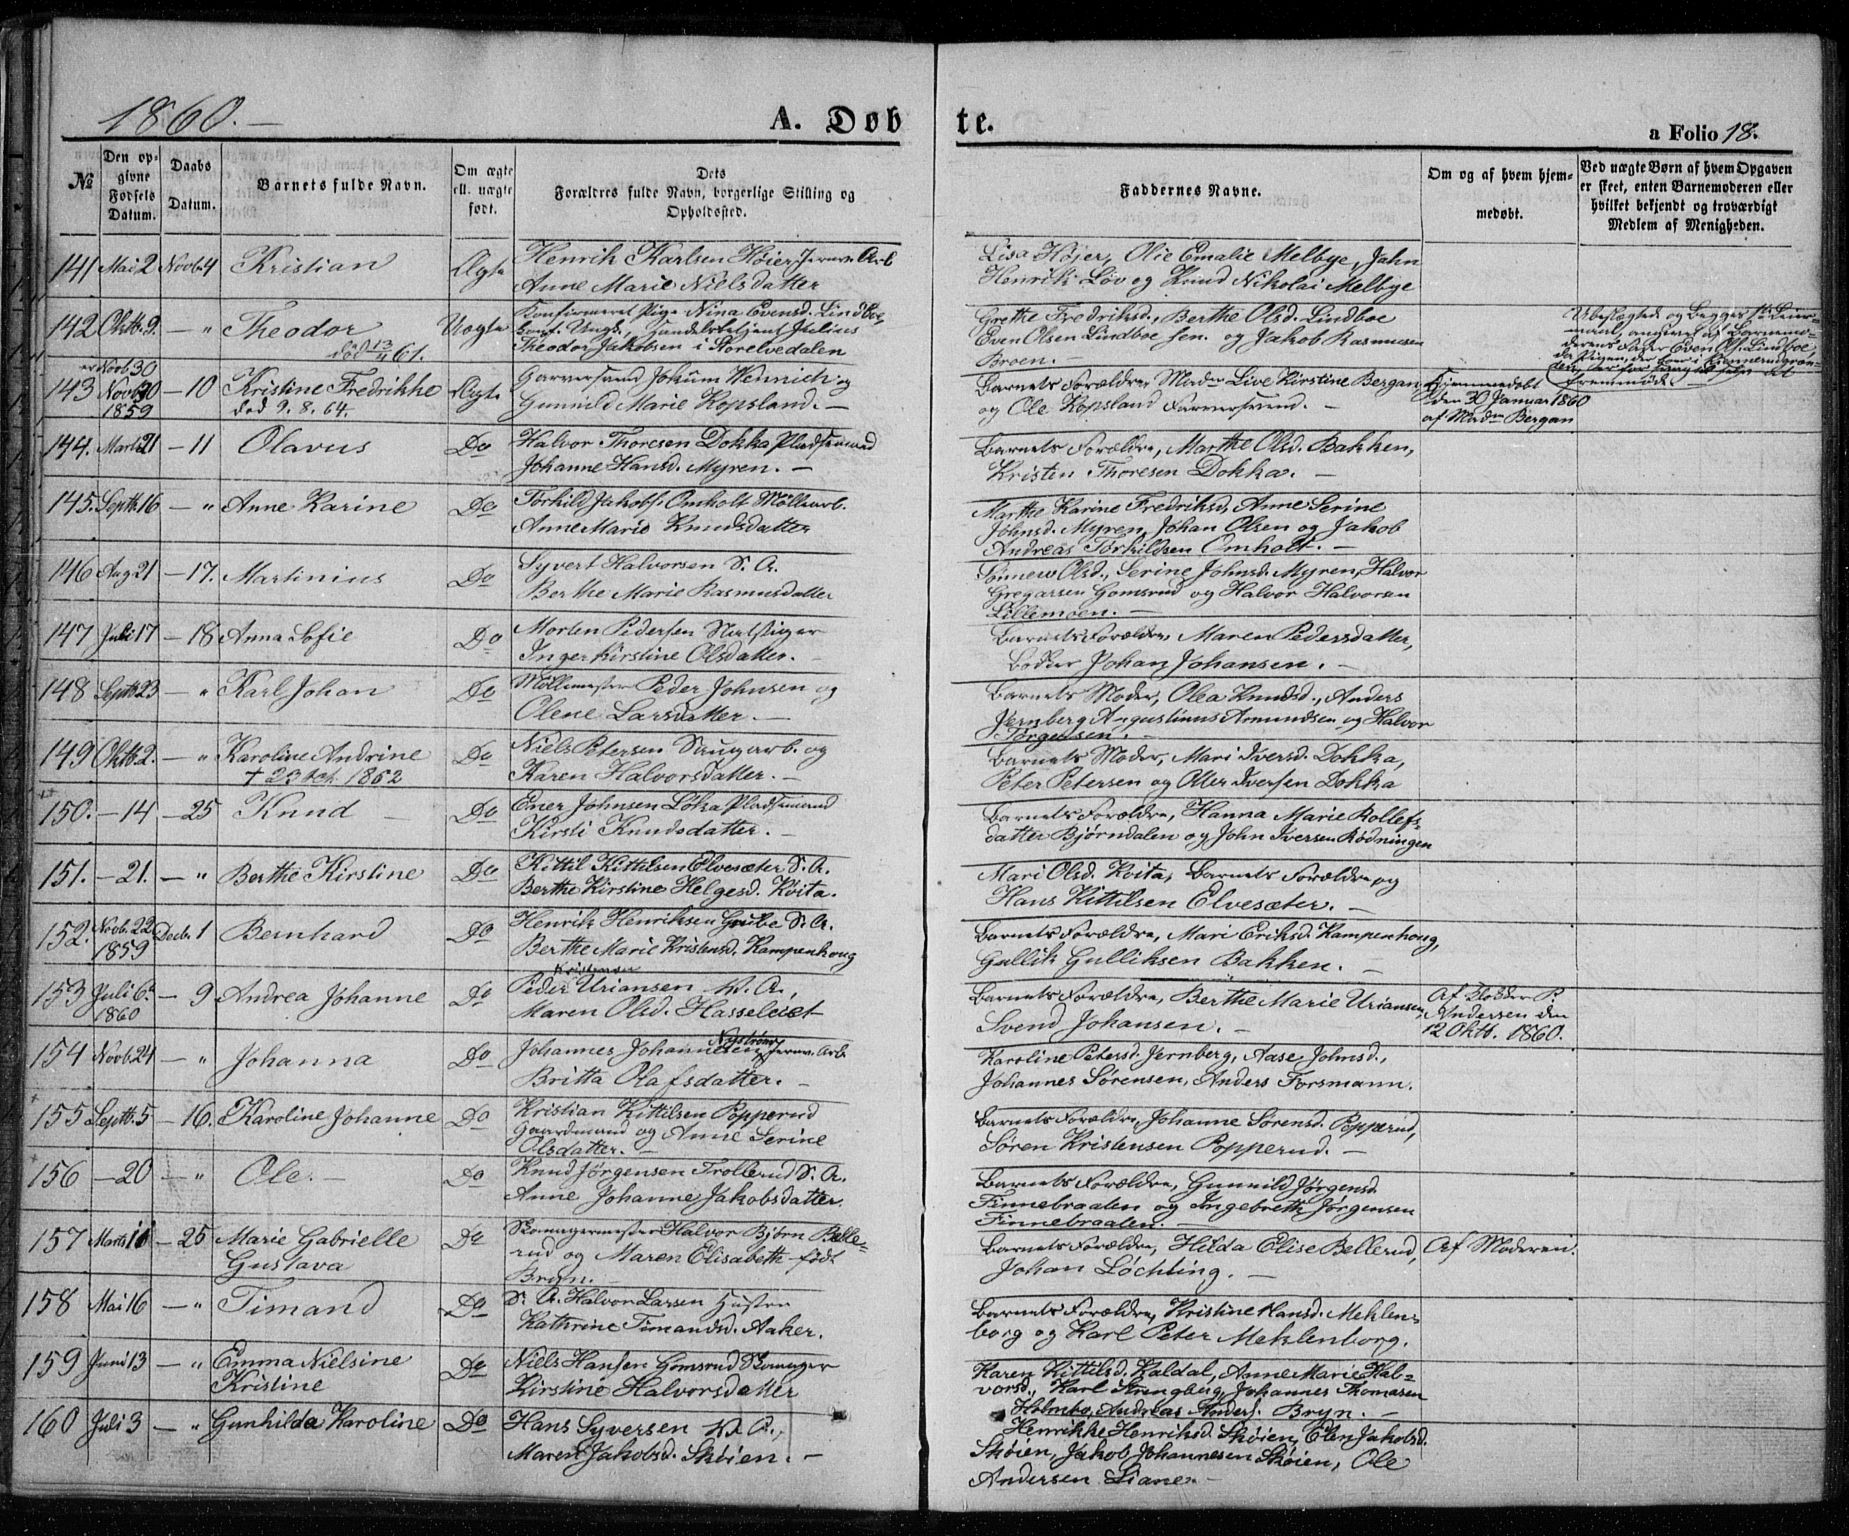 1860.
A. Døb
te.
a Folio 18.
№
Den op-
givne
Fødsels
Datum.
Daabs
Datum.
Barnets fulde Navn.
Om ægte
ell. uægte
født.
Dets
Forældres fulde Navn, borgerlige Stilling og
Opholdssted.
Faddernes Navne.
Om og af hvem hjem-
medøbt.
Ved uægte Børn af hvem Opgaven
er skeet, enten Barnemoderen eller
hvilket bekjendt og troværdigt
Medlem af Menigheden.
141 Mai 2 Novb. 4 Kristian Ægte Henrik Karlsen Høier Jernv. Arb
Anne Marie Nielsdatter
Lisa Højer, Olie Emalie Melbye, Jahn
Henrik Löv og Knud Nikolai Melbye
142 Oktb. 9. — " Theodor Uegte Konfirmeret Pige Nina Evensd. Lindboe,
død 13/11 61. Ungk. Handelsbetjent Julius
Theodor Jakobsen i Storelvedalen
Grethe Fredriksd., Berthe Olsd. Lindboe
Even Olsen Lindboe sen. og Jakob Rasmusen
Broen. —
Ubeslægtede og Begges 1ste Leier-
maal, angivet af Barnemo-
derens Fader Even Ols. Lindboe
da Pigen, der bor i
fremmøde
Novb 30
143 Novb 30 — 10 Kristine Fredrikke Ægte Garversvend Jokum Wennich og
1859 død 9. 8. 64. Gunnild Marie Kopsland. —
Barnets Forældre, Madm Live Kirstine Bergan,
og Ole Kopsland Farversvend. —
Hjemmedøbt
den 30 Januar 1860
af Madm Bergan
144. Marts 21 — 11 Olavus Do Halvor Thoresen Dokka Pladsemand
Johanne Hansd. Myren. —
Barnets Forældre, Marthe Olsd. Bakken,
Kristen Thoresen Dokka. —
145. Septb. 16 — " Anne Karine Do Torkild Jakobs. Omholt Møllearb.
Anne Marie Knudsdatter
Marthe Karine Fredriksd, Anne Serine
Johnsd. Myren, Johan Olsen og Jakob
Andreas Torkildsen Omholt. —
146 Aug 21 — 17. Martinius Do Syvert Halvorsen S. A.
Berthe Marie Rasmusdatter
Tonnew Olsd., Serine Johnsd. Myren, Halvor
Gregarsen Gomsrud og Halvor Halvorsen
Lillemoen. —
147 Juli 17 — 18 Anna Sofie Do Morten Pedersen
Inger Kirstine Olsdatter. —
Barnets Forældre, Maren Pedersdatter,
Bødker Johan Johansen. —
148 Septb. 23 — " Karl Johan Do Møllemester Peder Johnsen og
Olene Larsdatter. —
Barnets Moder, Olea Knudsd., Anders
Jernberg Augustinus Amundsen og Halvor
Jørgensen. —
149 Oktb. 2. — " Karoline Andrine Do Niels Petersen Saugarb. og
1862 Karen Halvorsdatter. —
Barnets Moder, Mari Iversd. Dokka,
Peter Petersen og Oller Iversen Dokka
150. — 14 — 25 Knud Do Ener Johnsen Löka Pladsemand
Kirsti Knudsdatter. —
Barnets Forældre, Hanna Marie Rollefs-
datter Bjørndalen og John Iversen Rødningen
151. — 21. — " Berthe Kirstine Do Kittil Kittilsen Elvesæter S. A.
Berthe Kirstine Helgesd. Kvita.
Mari Olsd. Kvita, Barnets Forældre og
Hans Kittilsen Elvesæter. —
152. Novb. 22 Decb. 1 Bernhard Do Henrik Henriksen Grube S. A.
1859 Berthe Marie Kristensd. Kampenhoug
Barnets Forældre, Mari Eriksd. Kampenhoug,
Gullik Gulliksen Bakken. —
153 Juli 6. — 9 Andrea Johanne Do Peder Kristensen Uriansen V. A.
1860 Maren Olsd. Hasseleiet
Barnets Forældre, Berthe Marie Uriansen,
Svend Johansen. —
Af Klokker P.
Andersen den
12 Oktb. 1860.
154 Novb. 24 — " Johanna Do Johannes Johannesen Nystrøm Jernv. Arb.
Britta Olafsdatter. —
Karoline Petersd. Jernberg, Aase Johnsd.,
Johannes Sørensen, Anders Forsmann.
155 Septb. 5 — 16. Karoline Johanne Do Kristian Kittilsen Popperud
Gaardmand og Anne Serine
Olsdatter. —
Barnets Forældre, Johanne Sørensd. Popperud,
Søren Kristensen Popperud. —
156 — 20 — " Ole. — Do Knud Jørgensen Trollerud S. A.
Anne Johanne Jakobsdatter.
Barnets Forældre, Gunnild Jørgensd.
Finnebraaten og Ingebreth Jørgensen
Finnebraaten. —
157 Marts 16 — 25 Marie Gabrielle Do Skomagermester Halvor Bjørn Belle-
Gustava rud og Maren Elisabeth født
Bryn. —
Barnets Forældre, Hilda Elise Bellerud,
Johan Løchting. —
Af Moderen.
158 Mai 16 — " Timand Do S. A. Halvor Larsen
Kathrine Timandsd. Aaker.
Barnets Forældre, Kristine Hansd. Mehlen-
borg og Karl Peter Mehlenborg.
159 Juni 13 — " Emma Nielsine Do Niels Hansen Gomsrud Skomager
Kristine Kirstine Halvorsdatter
Karen Kittilsd. Kaldal, Anne Marie Hal-
vorsd., Karl Strengberg, Johannes Thomasen
Holmbo, Andreas Anders. Bryn. —
160 Juli 3 — " Gunhilda Karoline Do Hans Syversen V. A.,
Maren Jakobsd. Skøien. —
Henrikke Henriksd. Skøien, Elen Jakobsd.
Skøien, Jakob Johannesen Skøien, Ole
Andersen Liane. —